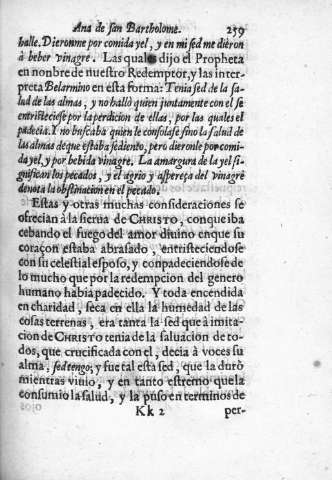 Ana de san Bartholome. 259
halle. Dieronme por comida yel, y en mi sed me dieron
à beber vinagre. Las quales dijo el Propheta
en nonbre de nuestro Redemptor, y las inter-
preta Belarmino en esta forma: Tenia sed de la sa-
lud de las almas, y no hallò quien juntamente con el se
entristeciese por la perdicion de ellas, por las quales el
padecia. Y no buscaba quien le consolase sino la salud de
las almas de que estaba sediento, pero dieronle por comi-
da yel, y por bebida vinagre. La amargura de la yel si-
gnifican los pecados, y el agrio y aspereça del vinagre
denota la obstinacion en el pecado.
Estas y otras muchas consideraciones se
ofrecian à la sierua de CHRISTO, con que iba
cebando el fuego del amor diuino en que su
coraçon estaba abrasado, entristeciendose
con su celestial esposo, y conpadeciendose de
lo mucho que por la redempcion del genero
humano habia padecido. Y toda encendida
en charidad, seca en ella la humedad de las
cosas terrenas, era tanta la sed que à imita-
cion de CHRISTO tenia de la saluacion de to-
dos, que crucificada con el, decia à voces su
alma, sed tengo; y fue tal està sed, que la durò
mientras viuio, y en tanto estremo que la
consumio la salud, y la puso en terminos de
Kk 2 per-